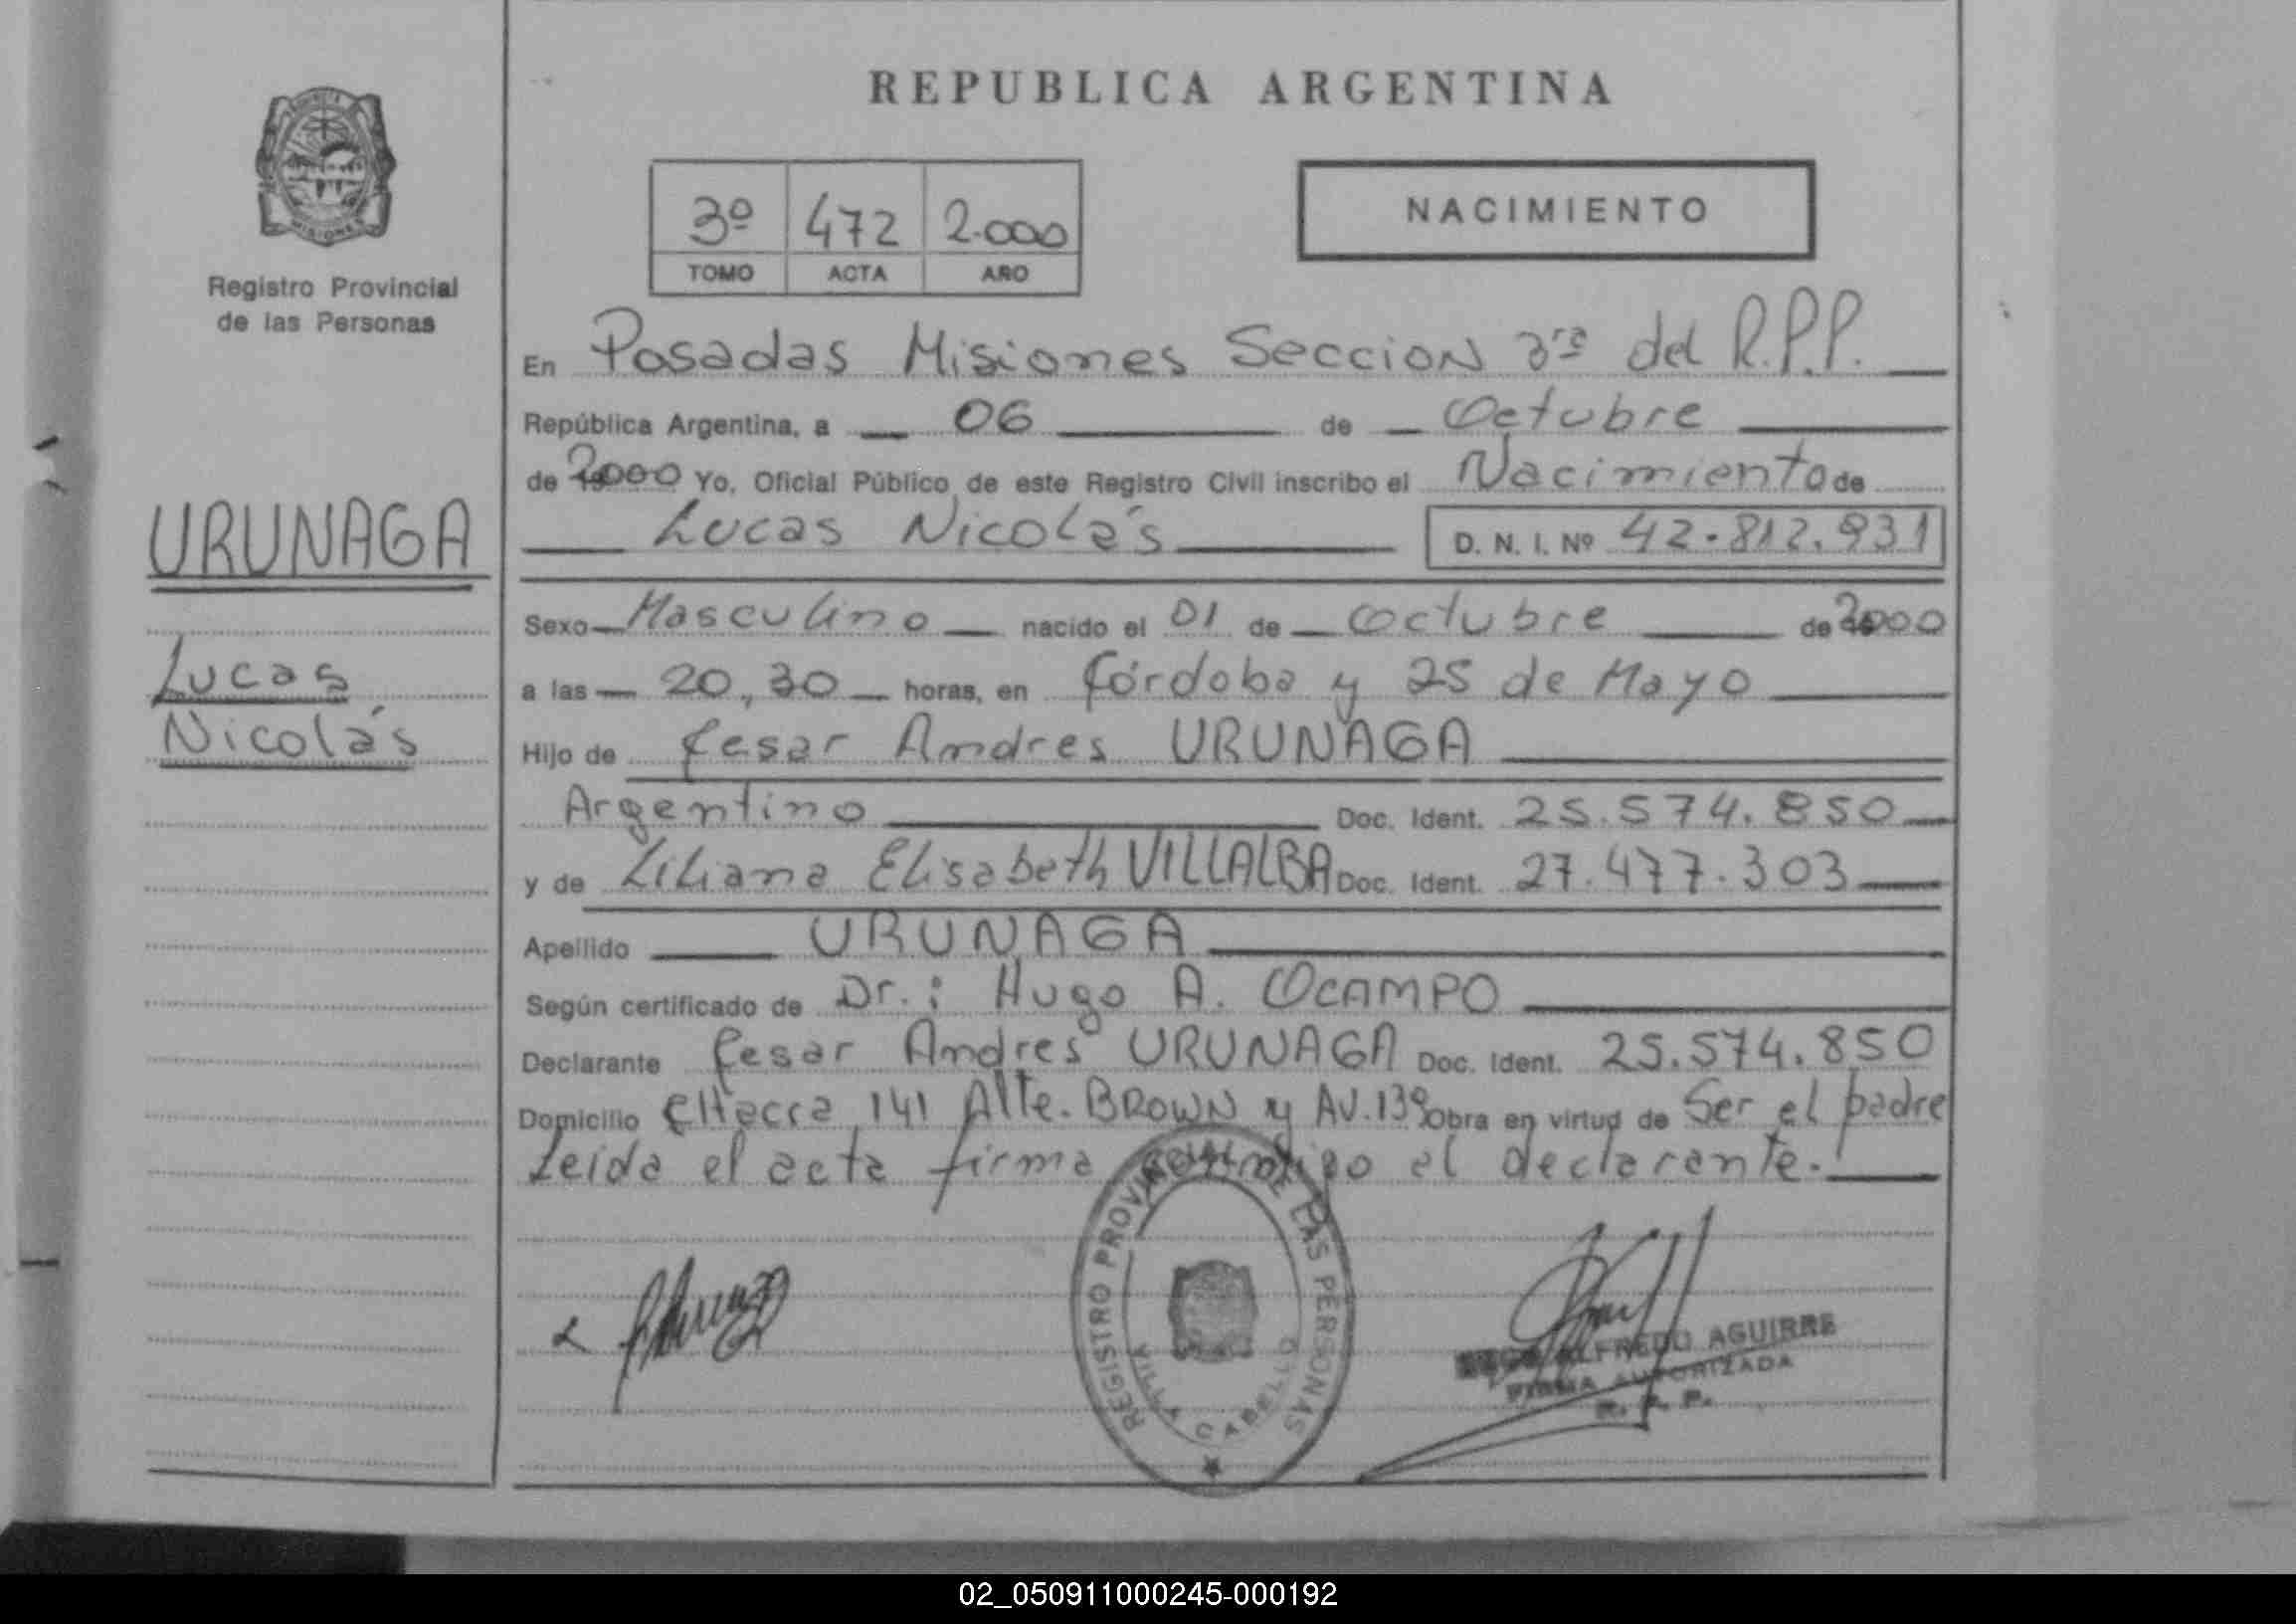 REPUBLICA ARGENTINA
PROVINCIA
MISIONES
Registro Provincial
de las Personas
URUNAGA
Lucas
Nicolás
3º 472 2.000
TOMO ACTA AÑO
NACIMIENTO
En Posadas Misiones Seccion 3ra del R.P.P.
República Argentina, a 06 de Octubre
de 2000 Yo, Oficial Público de este Registro Civil inscribo el Nacimiento de
Lucas Nicolás D. N. I. Nº 42.812.931
Sexo Masculino nacido el 01 de Octubre de 2000
a las 20,30 horas, en Córdoba y 25 de Mayo
Hijo de Cesar Andres URUNAGA
Argentino Doc. Ident. 25.574.850
y de Liliana Elisabeth VILLALBA Doc. Ident. 27.477.303
Apellido URUNAGA
Según certificado de Dr.: Hugo A. OCAMPO
Declarante Cesar Andres URUNAGA Doc. Ident. 25.574.850
Domicilio CHacra 141 Alte. BROWN y AV.139 Obra en virtud de Ser el padre
Leida el acta firma conmigo el declarante.
REGISTRO PROVINCIAL DE LAS PERSONAS
VILLA CABELLO
ALFREDO AGUIRRE
FIRMA AUTORIZADA
R. P. P.
02_050911000245-000192